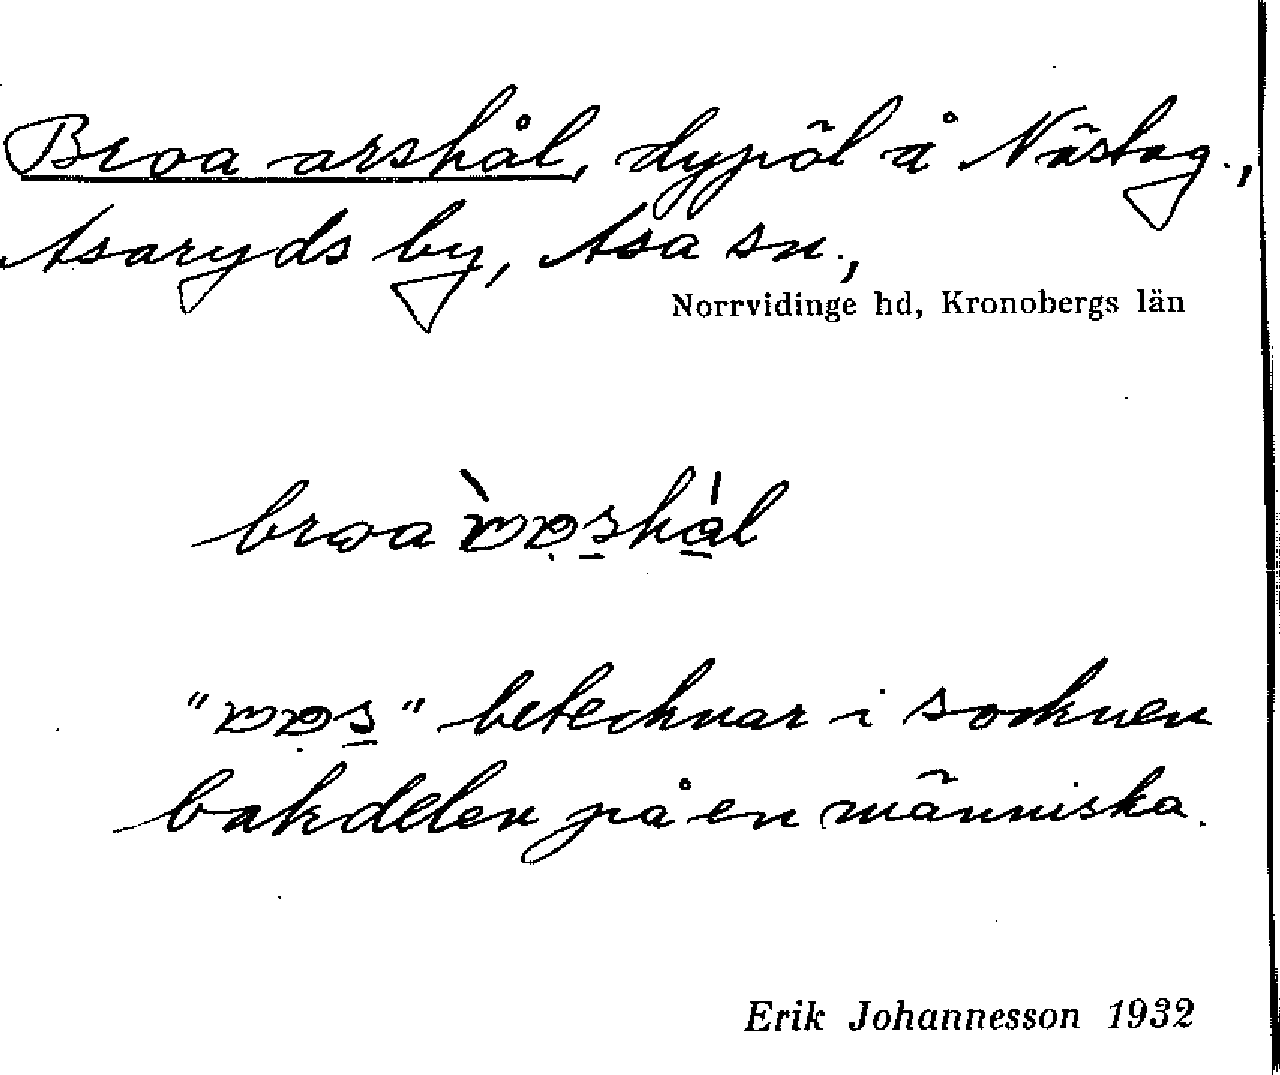 Broa arshål, dypöl å Nästag.,
Asaryds by, Asa sn.,
Norrvidinge hd, Kronobergs län
broa
" " betecknar i socknen
bakdelen på en människa.
Erik Johannesson 1932